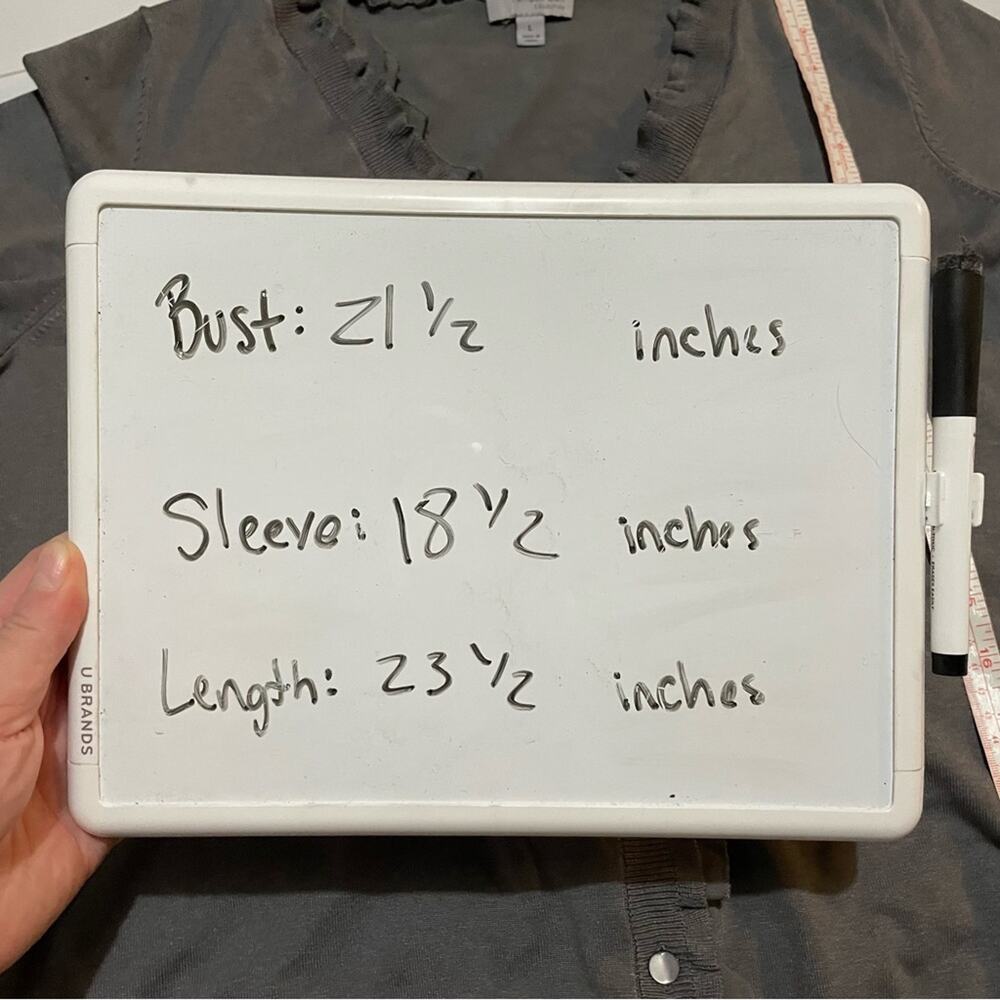 L
Bust: 21 1/2 inches
Sleeve: 18 1/2 inches
Length: 23 1/2 inches
U BRANDS
16